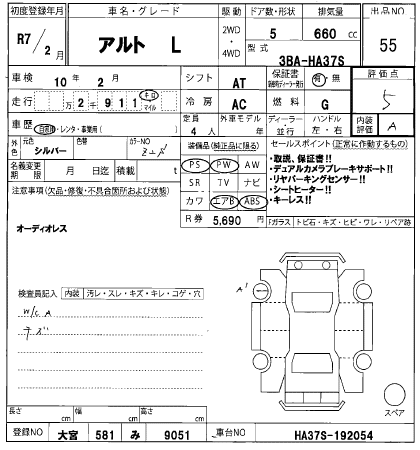 初度登録年月 車名・グレード 駆動 ドア数・形状 排気量 出品NO
R7/2月 アルト L 2WD・4WD 5 660cc 55
型式 3BA-HA37S
車検 10年2月 シフト AT 保証書 有・無 評価点
走行 万2千911 キロ マイル 冷房 AC 燃料 G 5
車歴 自家用・レンタ・事業用( ) 定員 4人 外車モデル 年 ディーラー・並行 ハンドル 左・右 内装評価 A
外色 元色 シルバー 色替 カラーNO
装備品(純正品に限る) セールスポイント(正常に動作するもの)
名義変更期限 月 日迄 積載 t
PS PW AW
SR TV ナビ
カワ エアB ABS
・取説、保証書!!
・デュアルカメラブレーキサポート!!
・リヤパーキングセンサー!!
・シートヒーター!!
・キーレス!!
注意事項(欠品・修復・不具合箇所および状態)
オーディオレス
R券 5,690円
ガラス トビ石・キズ・ヒビ・ワレ・リペア跡
検査員記入 内装 汚レ・スレ・キズ・キレ・コゲ・穴
W/C A
キズ
A1
スペア
長さ cm 幅 cm 高さ cm
登録NO 大宮 581 み 9051 車台NO HA37S-192054